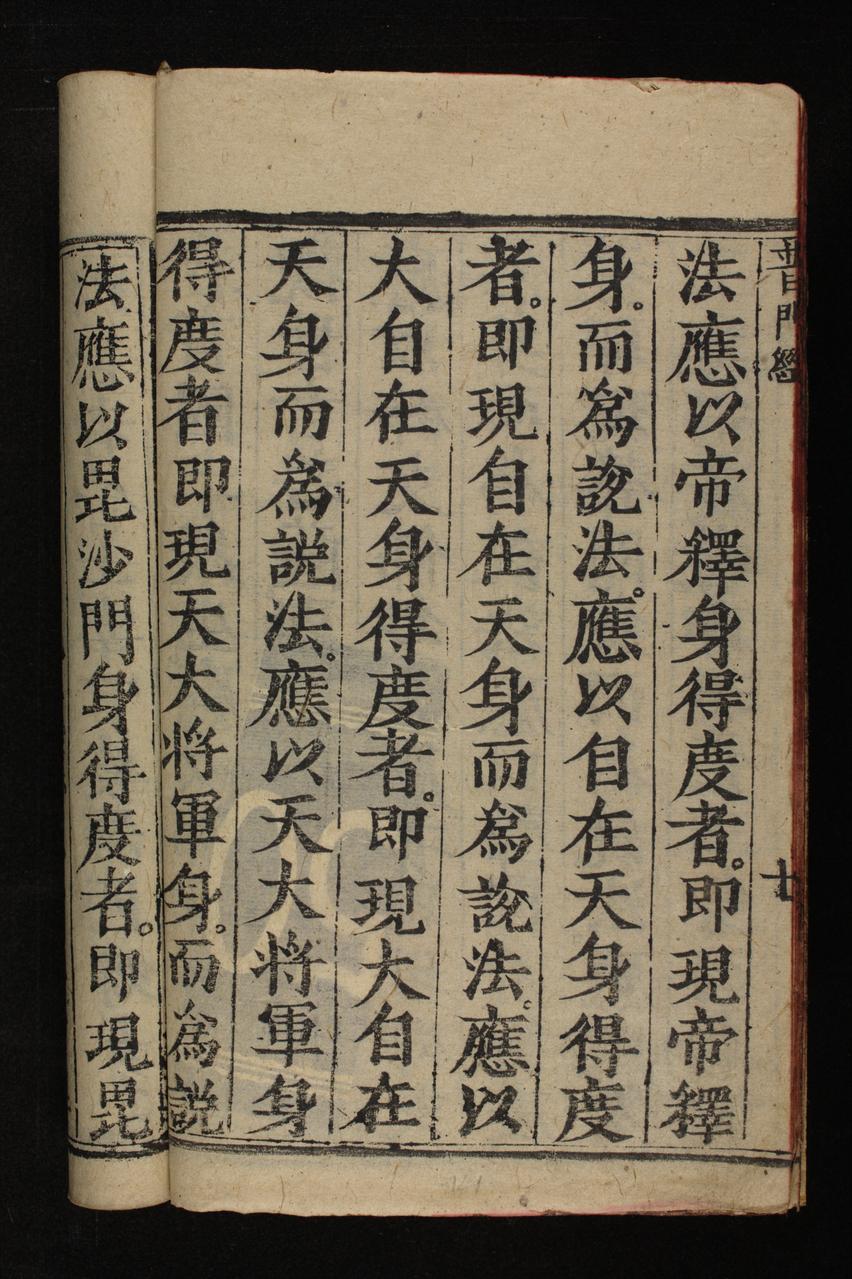 普門經
十
法應以帝釋身得度者。即現帝釋
身。而爲說法。應以自在天身得度
者。即現自在天身而爲說法。應以
大自在天身得度者。即現大自在
天身而爲説法。應以天大将軍身
得度者即現天大将軍身。而爲説
法應以毘沙門身得度者。即現毘